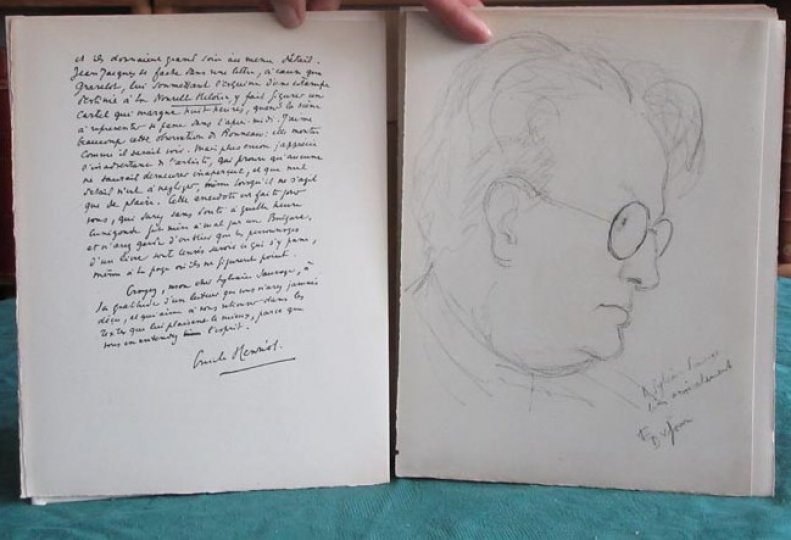 et ils donnaient grand soin au menu détail.
Jean-Jacques se fâche dans une lettre, à cause que
Gravelot, lui soumettant l'esquisse d'une estampe
destinée à la Nouvelle Héloïse, y fait figurer un
Cartel qui marque huit heures, quand la scène
à représenter se passe dans l'après-midi. J'aime
beaucoup cette observation de Rousseau: elle montre
comme il savait voir. Mais plus encore j'apprécie
l'inadvertance de l'artiste, qui prouve qu'aucune
ne saurait demeurer inaperçue, et que nul
détail n'est à négliger, même lorsqu'il ne s'agit
que de plaire. Cette anecdote est faite pour
vous, qui savez sans doute à quelle heure
Cunégonde fut mise à mal par un Bulgare,
et n'avez garde d'oublier que les personnages
d'un livre sont censés savoir ce qui s'y passe,
même à la page où ils ne figurent point.
Croyez, mon cher Sylvain Sauvage, à
la gratitude d'un lecteur que vous n'avez jamais
déçu, et qui aime à vous retrouver dans les
textes qui lui plaisent le mieux, parce que
vous en entendez l'esprit.
Emile Henriot.
A Sylvain Sauvage
très amicalement